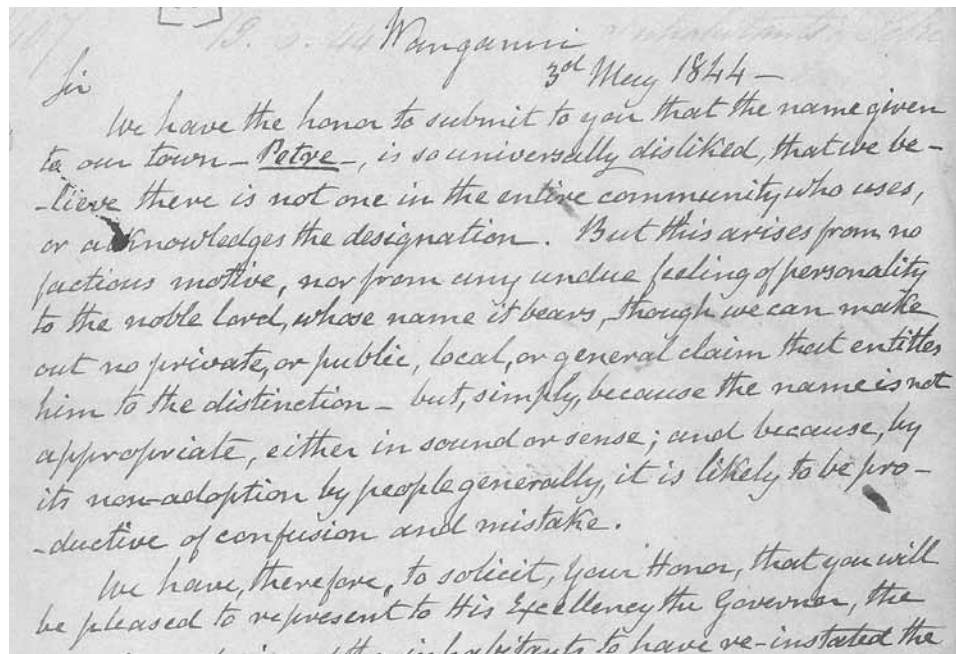 Wanganui
3rd May 1844 —
Sir
We have the honor to submit to you that the name given
to our town – Petre –, is so universally disliked, that we be–
–lieve there is not one in the entire community, who uses,
or acknowledges the designation. But this arises from no
factious motive, nor from any undue feeling of personality
to the noble lord, whose name it bears, though we can make
out no private, or public, local, or general claim that entitles
him to the distinction – but, simply, because the name is not
appropriate, either in sound or sense; and because, by
its non-adoption by people generally, it is likely to be pro–
–ductive of confusion and mistake.
We have, therefore, to solicit, Your Honor, that you will
be pleased to represent to His Excellency the Governor, the
inhabitants to have re-instated the